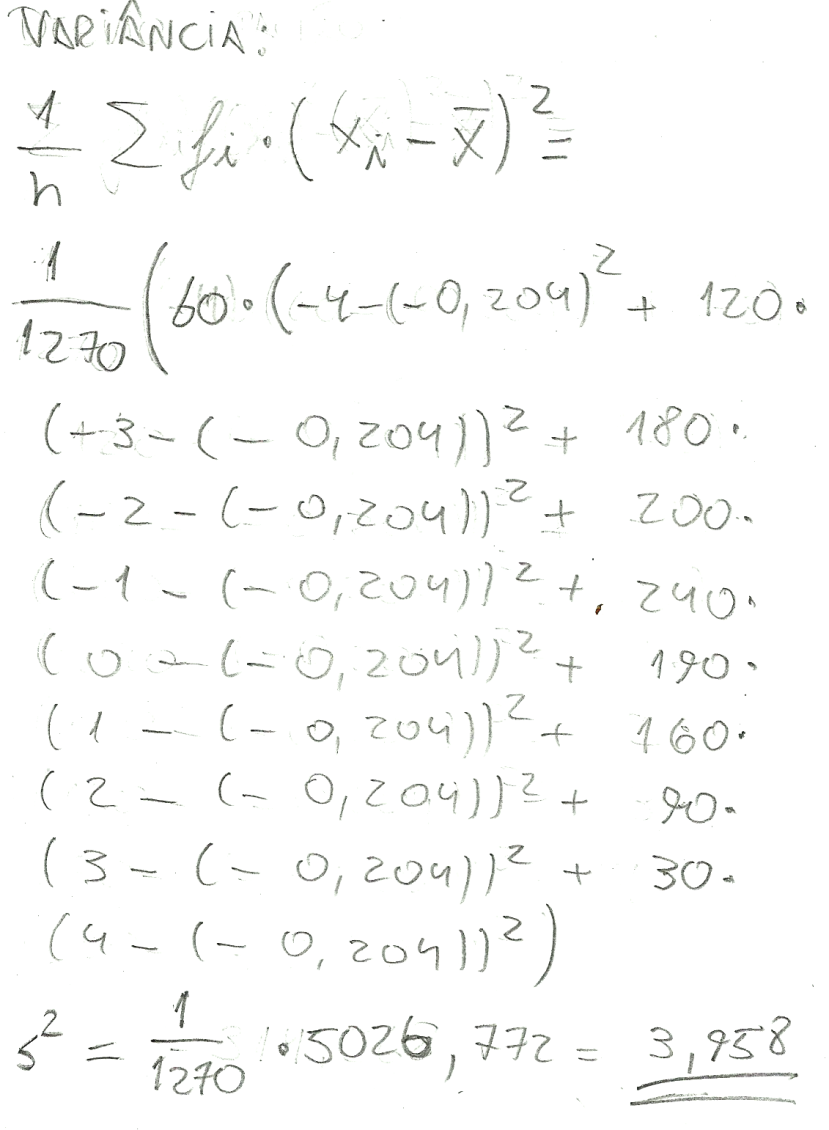 VARIÂNCIA:
1/n Σ fi · (xi - x̄)² =
1/1270 (60 · (-4-(-0,204)² + 120 ·
(+3-(-0,204))² + 180 ·
(-2-(-0,204))² + 200 ·
(-1-(-0,204))² + 240 ·
(0-(-0,204))² + 190 ·
(1-(-0,204))² + 160 ·
(2-(-0,204))² + 90 ·
(3-(-0,204))² + 30 ·
(4-(-0,204))²)
s² = 1/1270 · 5026,772 = 3,958